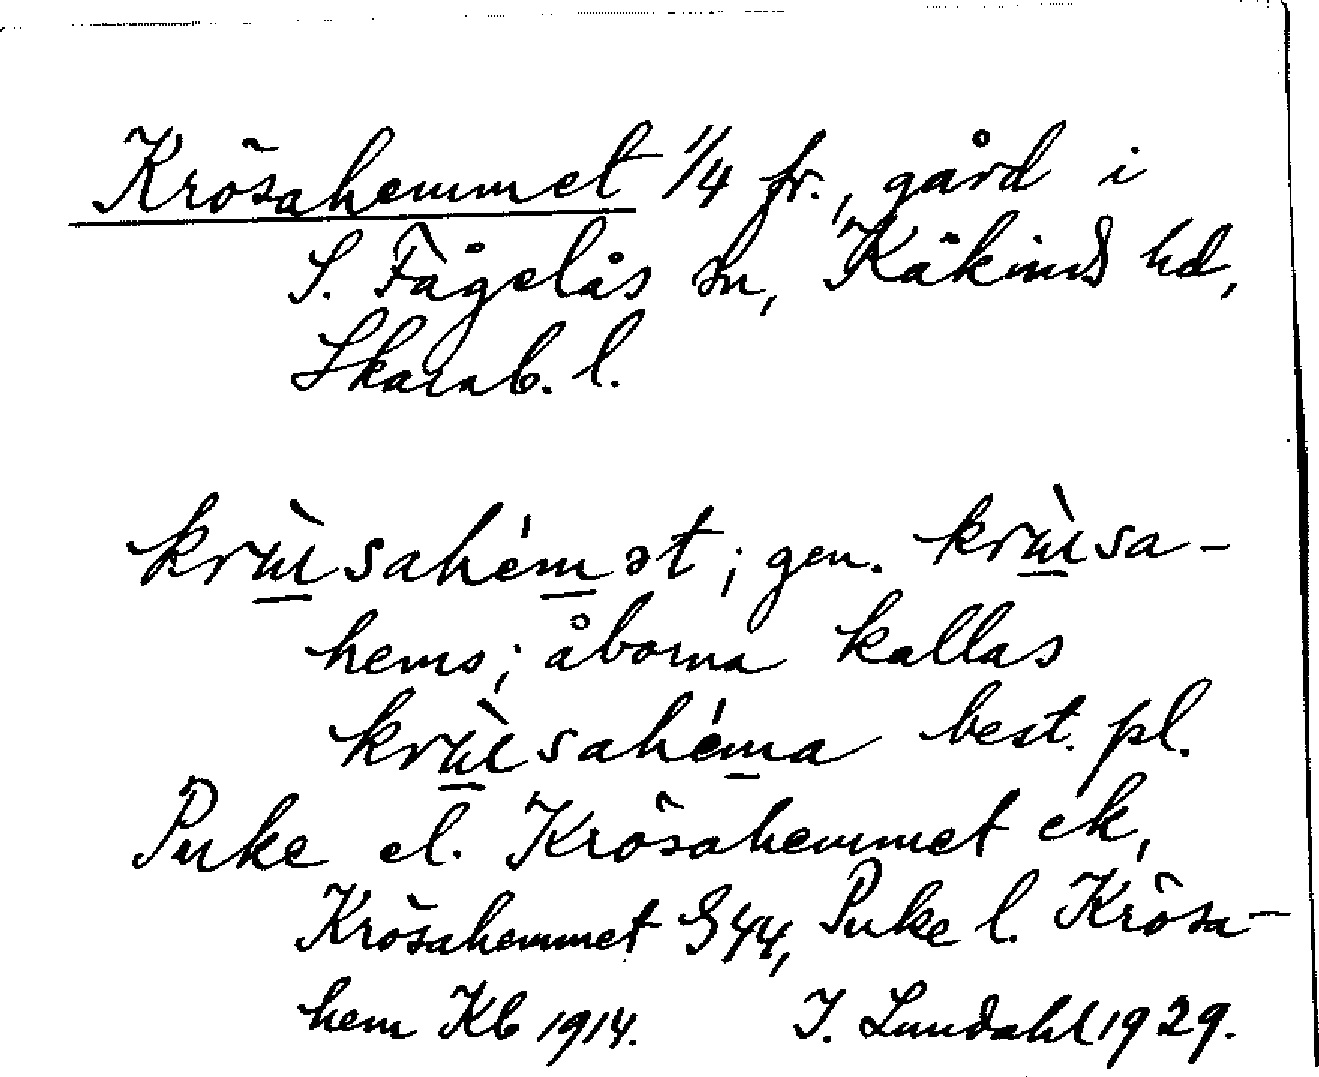 Krösahemmet 1/4 fr., gård i
S. Fågelås sn, Kåkinds hd,
Skarab. l.
krùsahém̲ət; gen. krùsa-
hems; åborna kallas
krùsahém̲a best. pl.
Puke el. Krösahemmet ek,
Krösahemmet G44, Puke l. Krösa-
hem Kb 1914. I. Lundahl 1929.